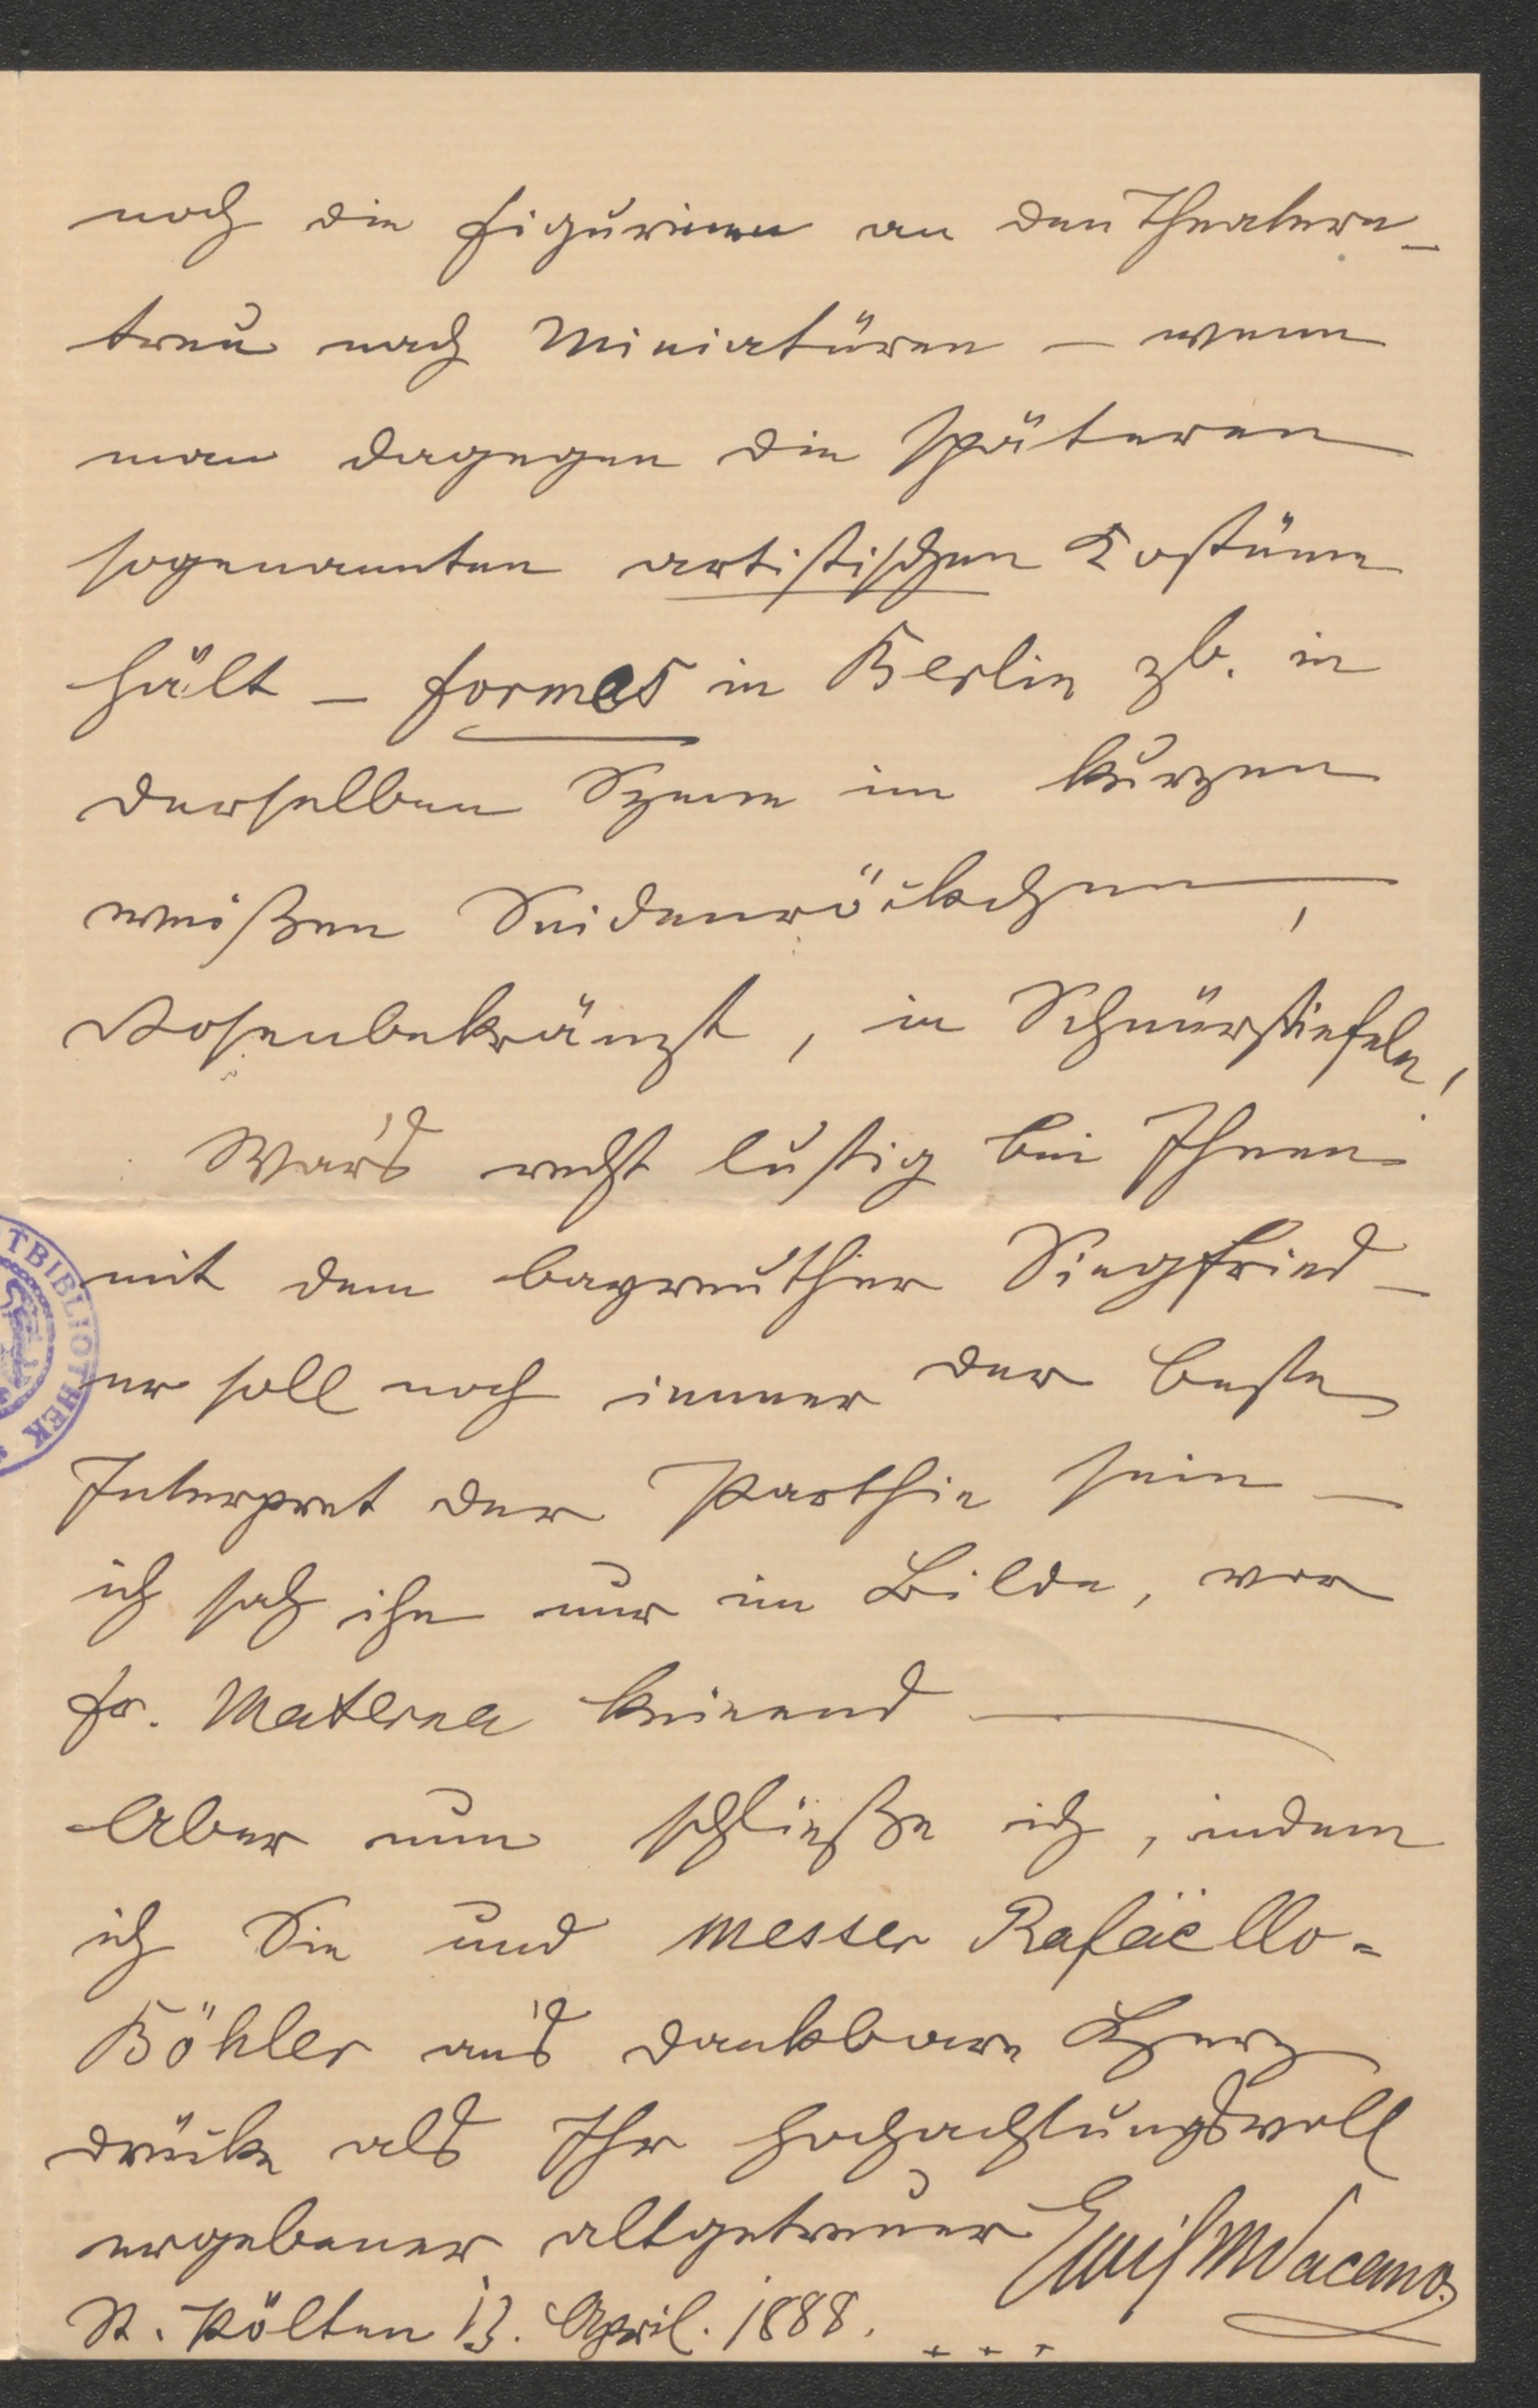 noch die Figurinen an den Theatern –
treu nach Miniatüren – wenn
man dagegen die späteren
sogenannten artistischen Kostüme
hält – Formes in Berlin zb. in
derselben Szene im kurzen
weißen Seidenröckchen,
Rosenbekränzt, in Schnürstiefeln!
War's recht lustig bei Ihnen
mit dem bayreuther Siegfried –
er soll noch immer der beste
Interpret der Parthie sein –
ich sah ihn nur im Bilde, vor
Fr. Materna knieend —
Aber nun schließe ich, indem
ich Sie und Messer Rafaëllo=
Böhler an's dankbare Herz
drücke als Ihr hochachtungsvoll
ergebener altgetreuer Emil M Vacano.
St. Pölten 13. April. 1888.
TBIBLIOTHEK